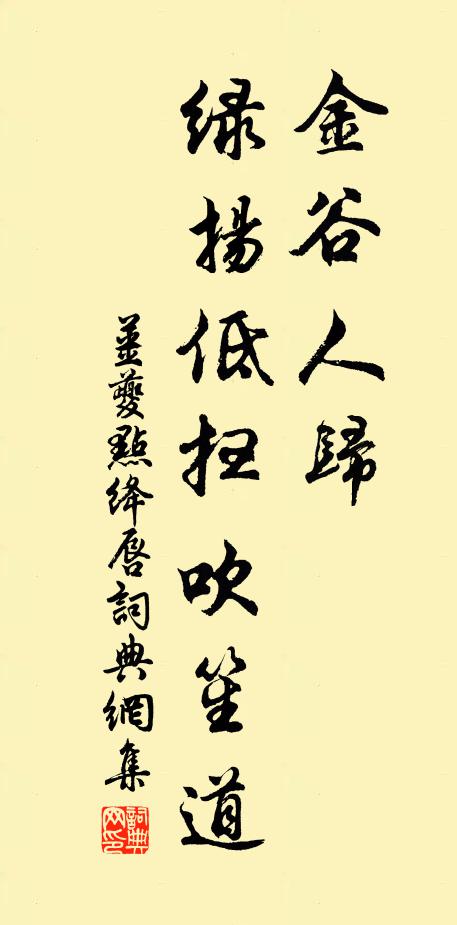 金谷人歸
綠揚低扫吹笙道
姜夔點絳唇詞典網集
詞典网印